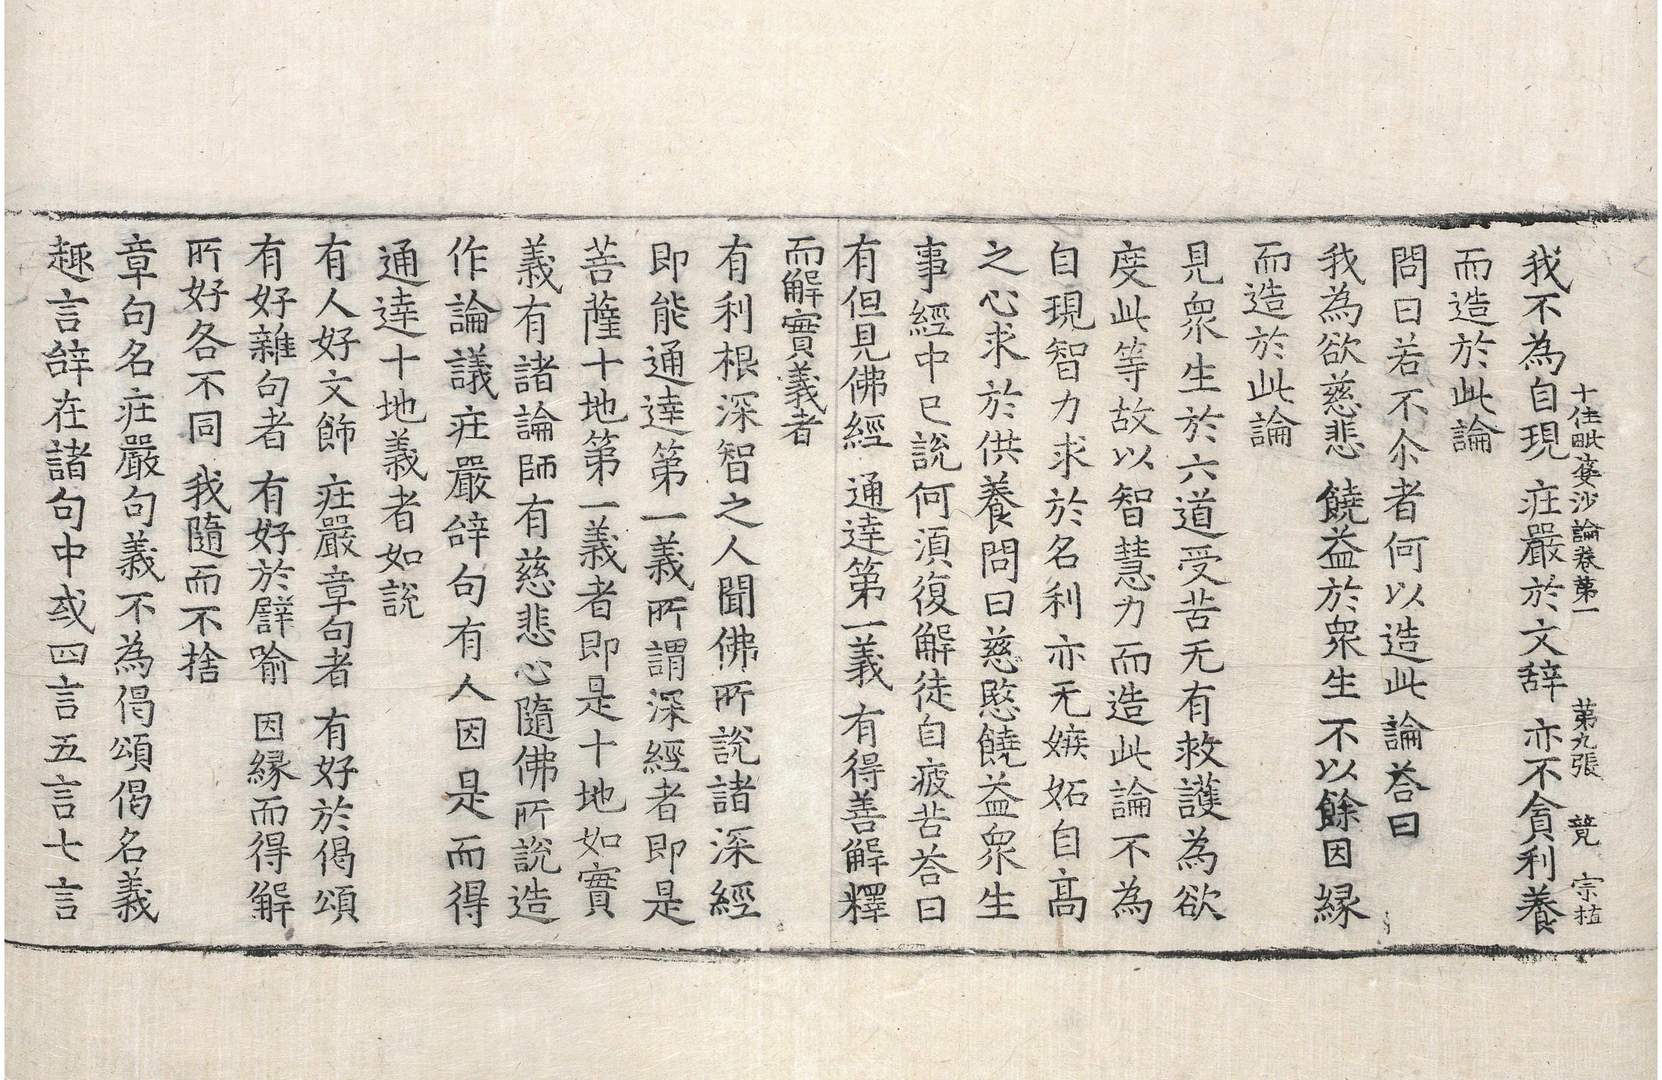 十住毗婆沙論卷第一 第九張 竟 宗植
我不為自現 庄嚴於文辞 亦不貪利養
而造於此論
問曰若不尒者何以造此論荅曰
我為欲慈悲 饒益於衆生 不以餘因縁
而造於此論
見衆生於六道受苦无有救護為欲
度此等故以智慧力而造此論不為
自現智力求於名利亦无嫉妬自高
之心求於供養問曰慈愍饒益衆生
事經中已說何湏復解徒自疲苦荅曰
有但見佛經 通達第一義 有得善解釋
而解實義者
有利根深智之人聞佛所說諸深經
即能通達第一義所謂深經者即是
菩薩十地第一義者即是十地如實
義有諸論師有慈悲心隨佛所說造
作論議庄嚴辝句有人因是而得
通達十地義者如說
有人好文飾 庄嚴章句者 有好於偈頌
有好雜句者 有好於譬喻 因縁而得解
所好各不同 我隨而不捨
章句名庄嚴句義不為偈頌偈名義
趣言辝在諸句中或四言五言七言